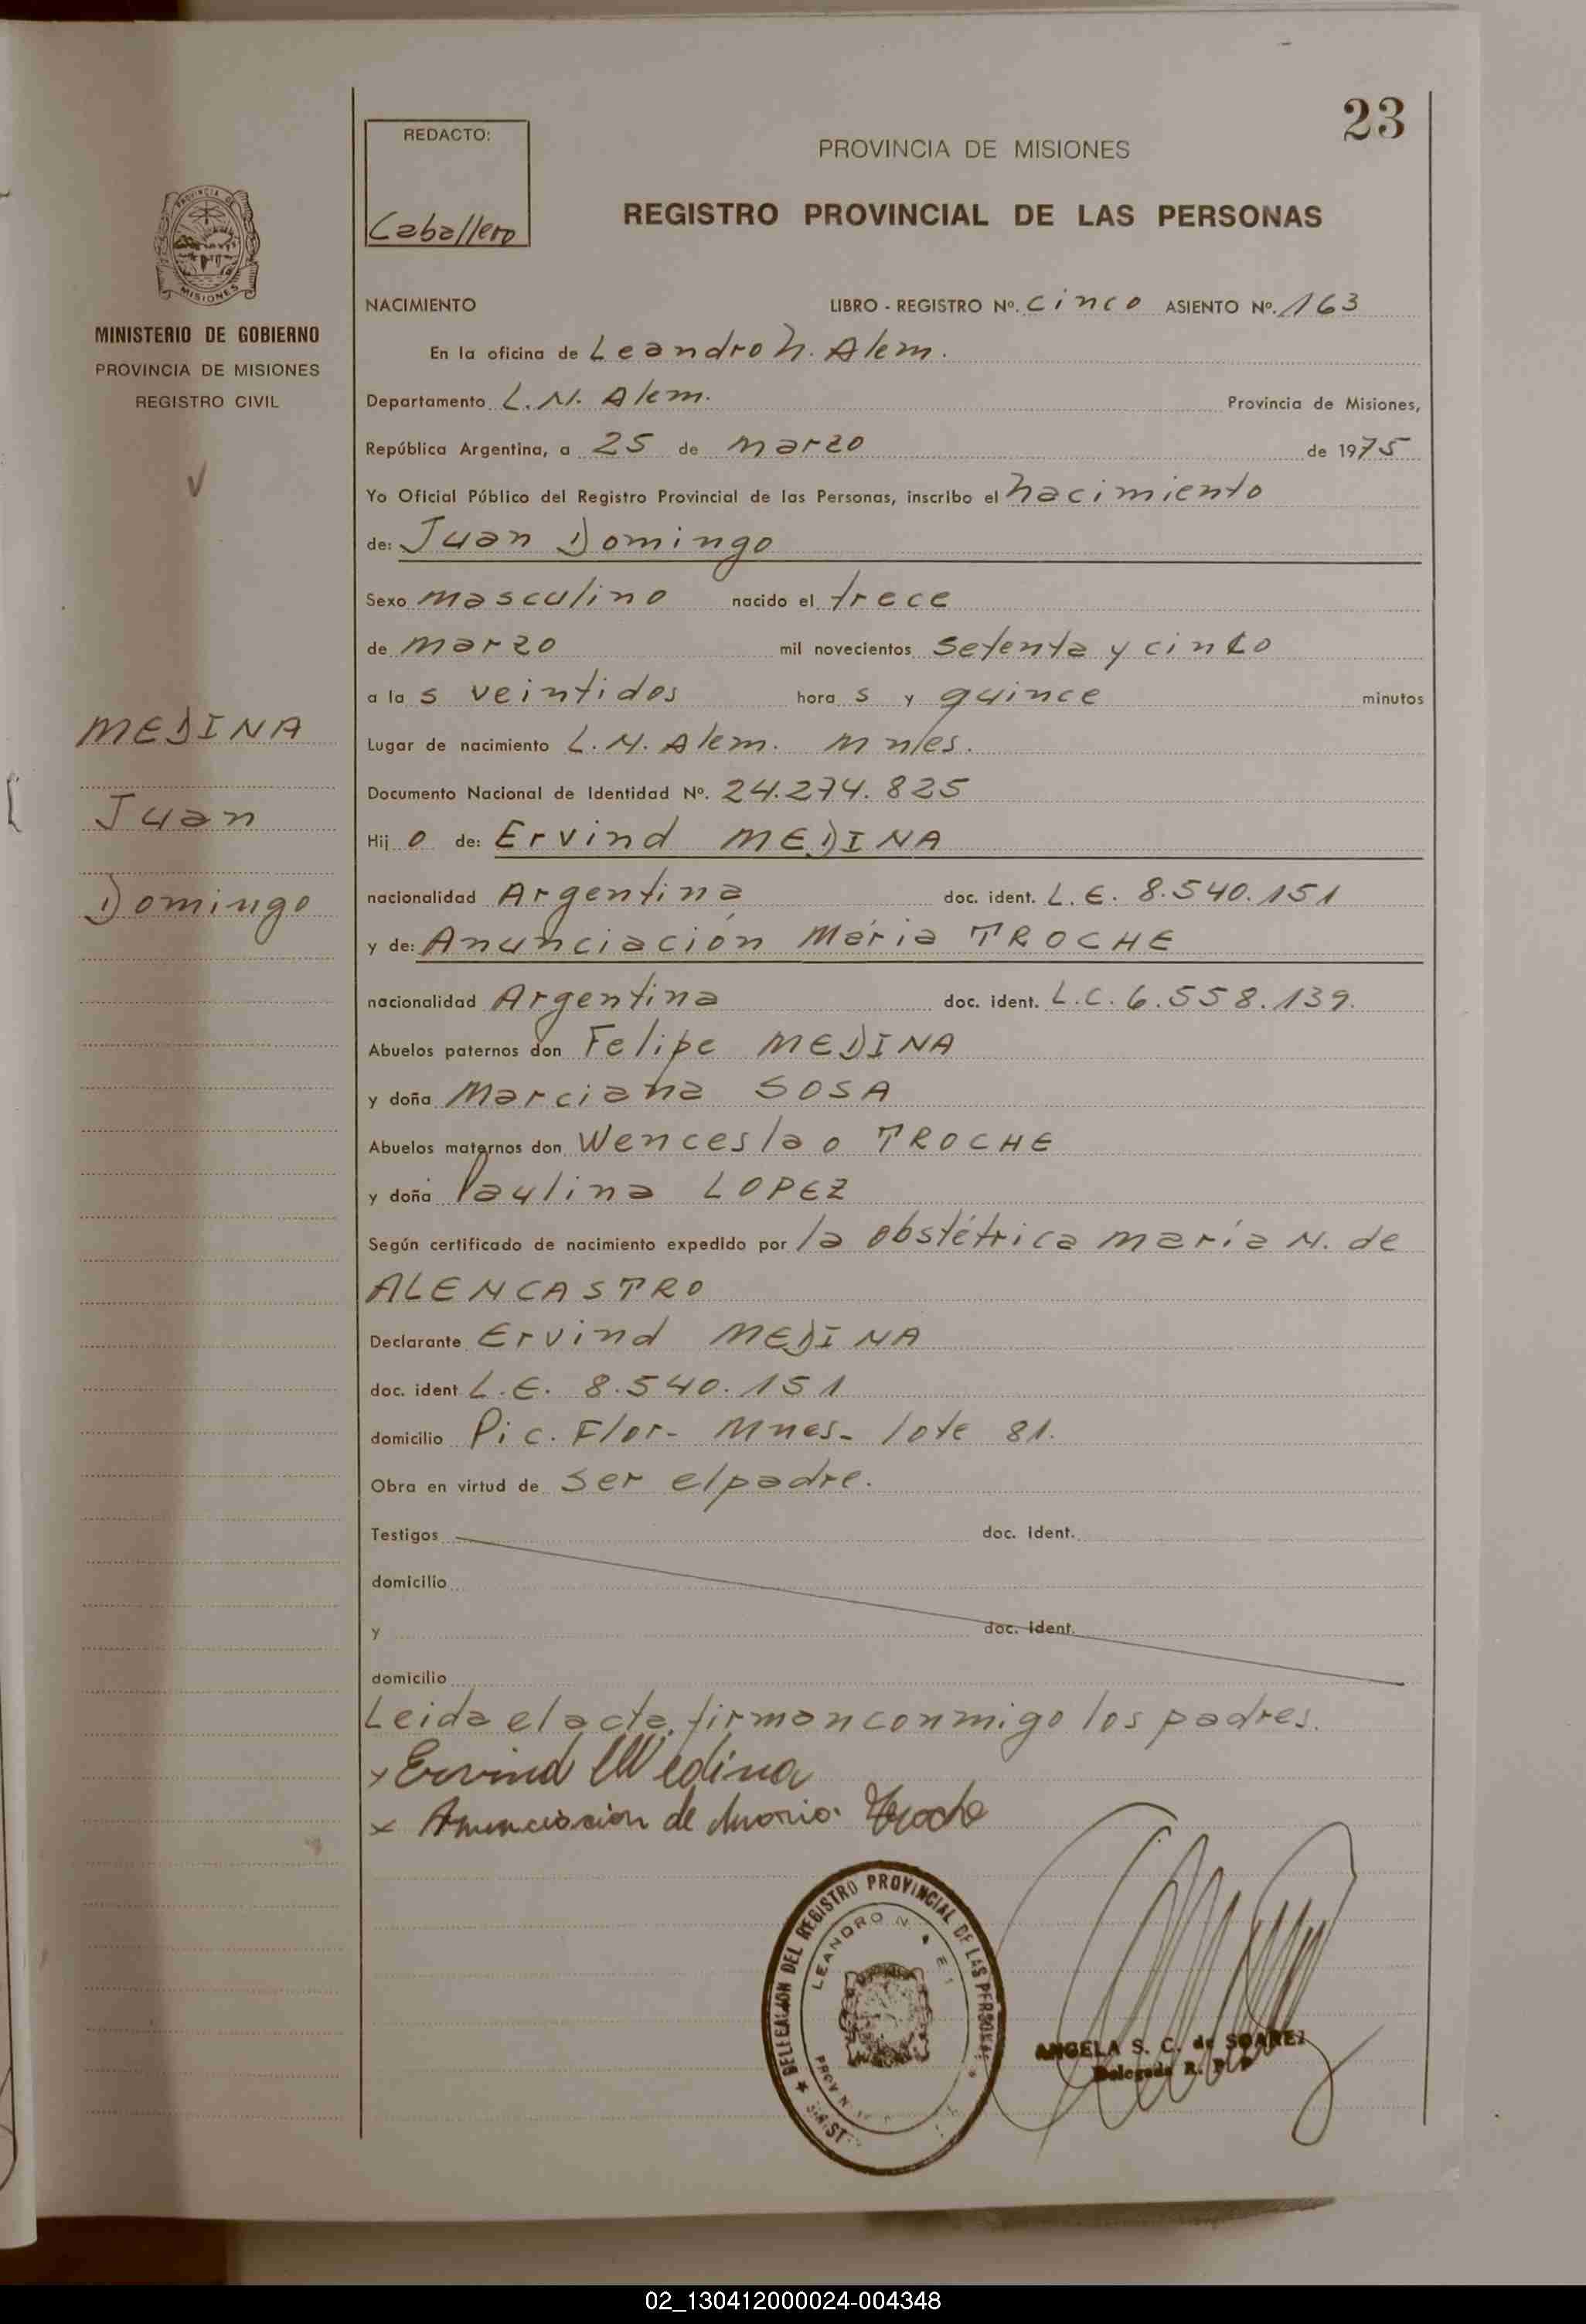 23
REDACTO:
Caballero
PROVINCIA DE MISIONES
REGISTRO PROVINCIAL DE LAS PERSONAS
PROVINCIA DE
MISIONES
MINISTERIO DE GOBIERNO
PROVINCIA DE MISIONES
REGISTRO CIVIL
MEDINA
Juan
Domingo
NACIMIENTO LIBRO - REGISTRO Nº. cinco ASIENTO Nº. 163
En la oficina de Leandro N. Alem.
Departamento L. N. Alem. Provincia de Misiones,
República Argentina, a 25 de marzo de 1975
Yo Oficial Público del Registro Provincial de las Personas, inscribo el nacimiento
de: Juan Domingo
Sexo masculino nacido el trece
de marzo mil novecientos setenta y cinco
a la s veintidos hora s y quince minutos
Lugar de nacimiento L. N. Alem. Mnes.
Documento Nacional de Identidad Nº. 24.274.825
Hij o de: Ervind MEDINA
nacionalidad Argentina doc. ident. L. E. 8.540.151
y de: Anunciación María TROCHE
nacionalidad Argentina doc. ident. L.C. 6.558.139.
Abuelos paternos don Felipe MEDINA
y doña Marciana SOSA
Abuelos maternos don Wenceslao TROCHE
y doña Paulina LOPEZ
Según certificado de nacimiento expedido por la obstétrica maría N. de
ALENCASTRO
Declarante Ervind MEDINA
doc. ident L. E. 8.540.151
domicilio Pic. Flor- Mnes- lote 81.
Obra en virtud de ser el padre.
Testigos doc. ident.
domicilio
y doc. ident.
domicilio
Leida el acta, firman conmigo los padres.
x Ervind Medina
x Anunciasion de Maria Troche
DELEGACION DEL REGISTRO PROVINCIAL DE LAS PERSONAS
LEANDRO N.
ANGELA S. C. de SOAREZ
Delegada R. P. P
02_130412000024-004348